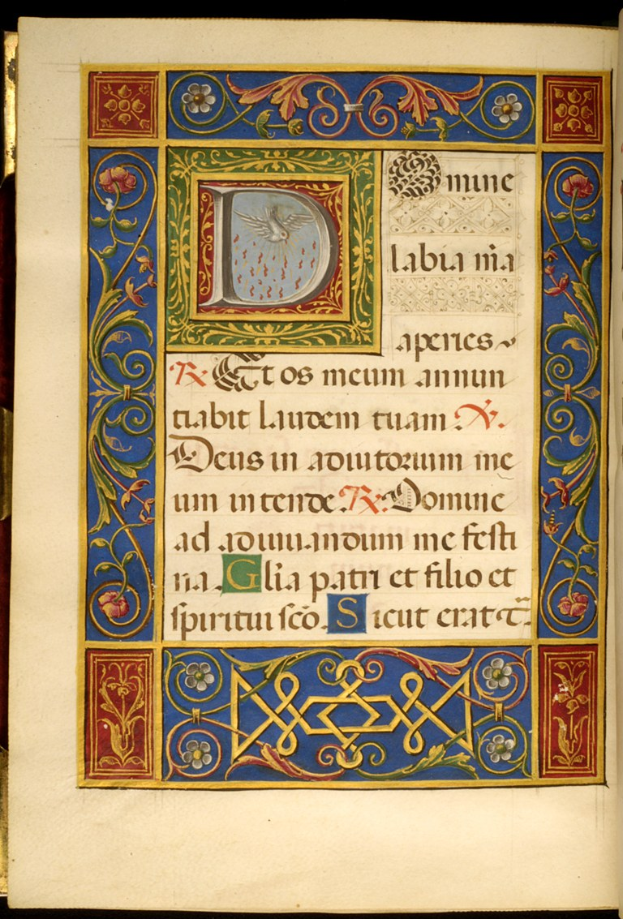 Domine
labia m̄a
aperies
℟. Et os meum annun
tiabit laudem tuam. ℣.
Deus in adiutorium me
um intende. ℟. Domine
ad adiuuandum me festi
na. Glia patri et filio et
spiritui sc̄o. Sicut erat ⁊c̄.